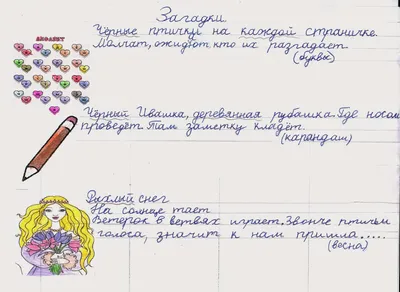 Загадки.
Чёрные птички на каждой страничке.
Молчат, ожидают кто их разгадает
(буквы)
АЛФАВИТ
Чёрный Ивашка, деревянная рубашка. Где носом
проведёт. Там заметку кладёт.
(карандаш)
Рыхлый снег
На солнце тает
Ветерок в ветвях играет. Звонче птичьи
голоса, значит к нам пришла.....
(весна)